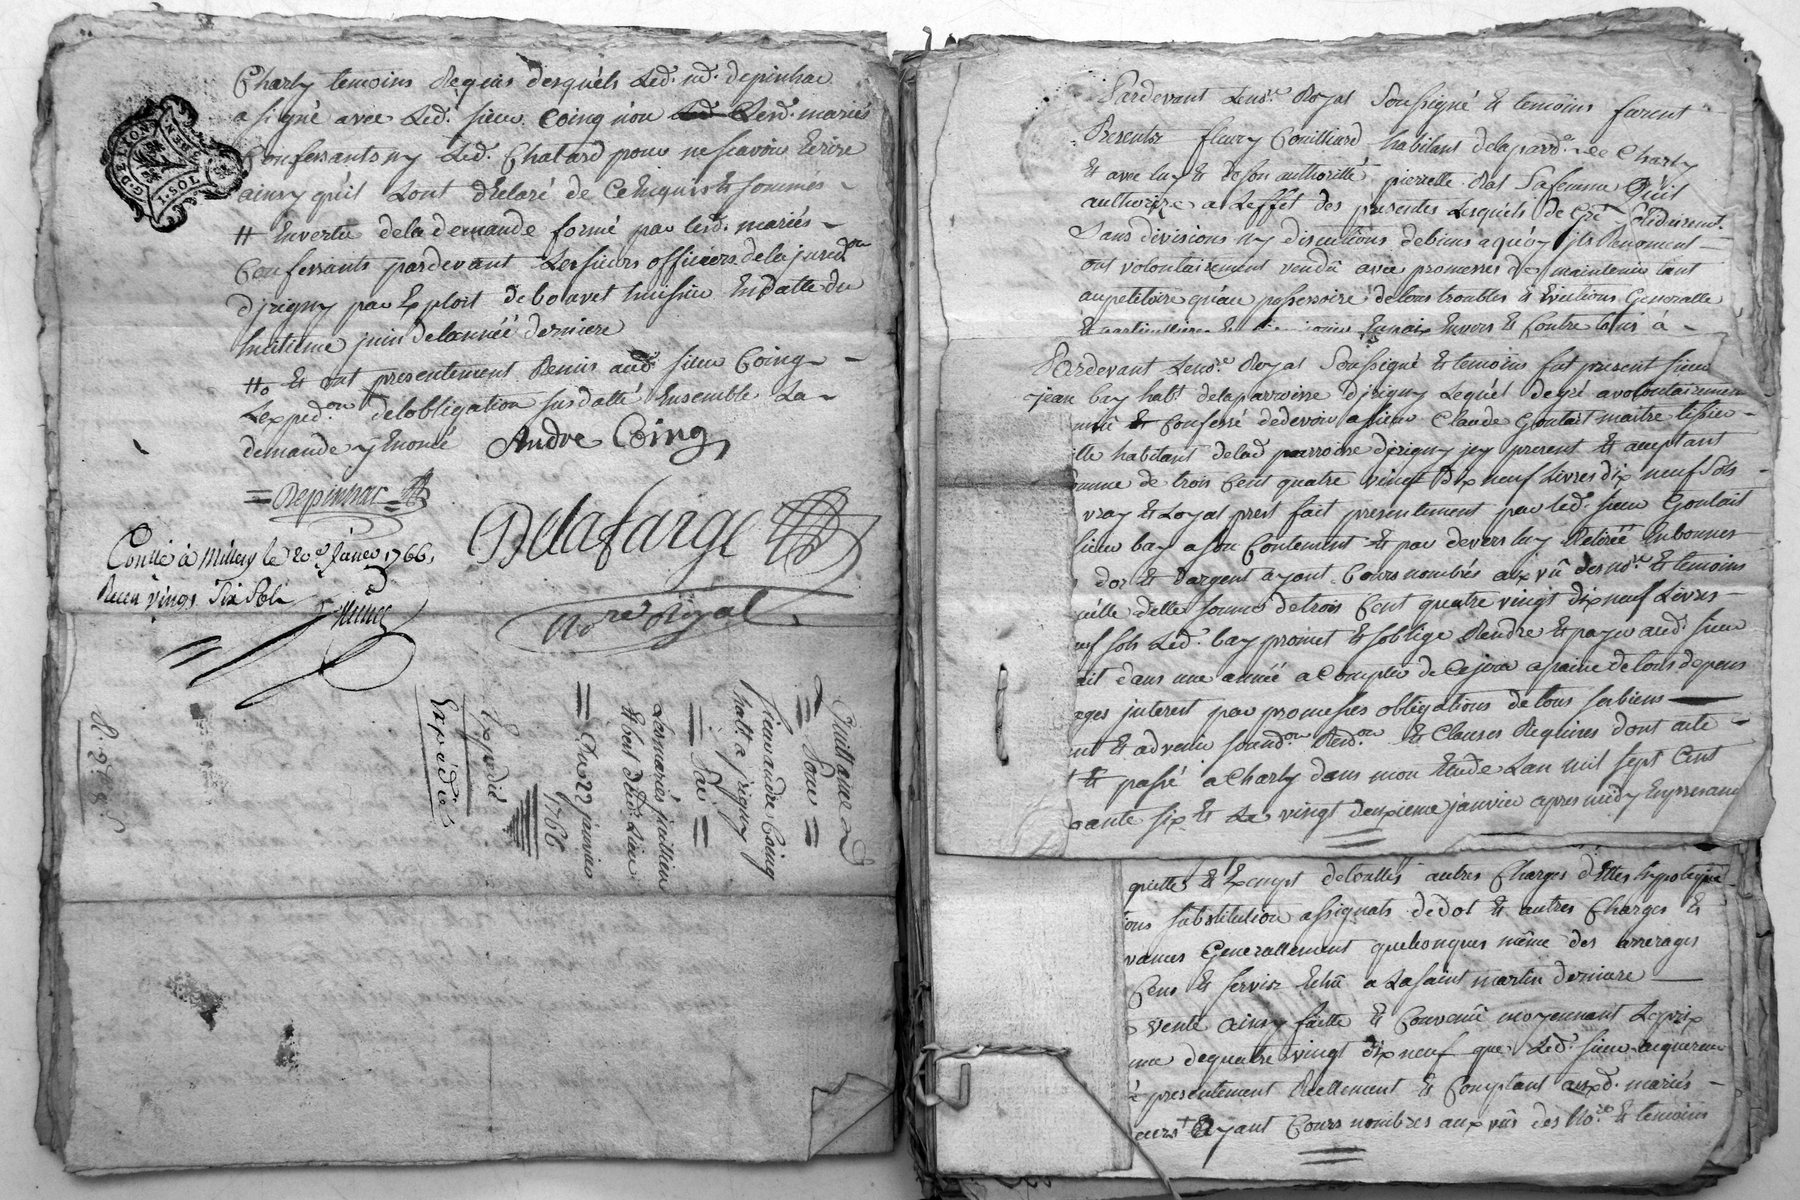 Charly temoins Requis desquéls Led. nd. depinhac
a signé avec Led. sieur Coing non Lesd. mariés
Confessants ny Led. Chatard pour ne scavoir Ecrire
ainsy quil Lont déclaré de ce Enquis et sommés
# En vertu de la demande formé par lesd. mariés
Confessants pardevant Les sieurs officiers de la juridon
d'jrigny par Exploit de boavet huissier En datte du
huitieme juin de lannéé derniere
# o et ont presentement Remis aud. sieur Coing
Lexpedon de lobligation susdatté Ensemble La
demande y Enoncé André Coing
= Depinhac =
Delafarge
Conllé à Millery le 20e janvr 1766,
Recu vingt six sols
Nore Royal
G. DE LYON
Quittance D
= Pour =
sieur andre Coing
habt. a jrigny
= Par =
Les mariés jullien
Et bert dud. Lieu
= Du 22 janvier
1766
Expedié
Expédié
R. 2d. 8s
Pardevant Le nore Royal Soussigné Et temoins furent
Presents fleury Couilliard habitant de la parrd. de Charly
Et avec luy Et de son authorité pierrette Rat Sa femme quil
authorize a Leffet des presentes Lesquéls de Gré Solidairemt.
Sans divisions ny discutions de biens a quoy jls Renoncent
ont volontairement vendû avec promesses de maintenir tant
au petitoire qu'au possessoire de tous troubles Et Evictions Generalle
Et particulliere Envers Et Contre tous à
Pardevant Le nore Royal Soussigné Et temoins fut present sieur
jean bay habt. de la parroisse d'jrigny Lequél de gré a volontairement
Et Confessé de devoir a sieur Claude Goutait maitre tissier
habitant de lad parroisse d'jrigny jcy present Et acceptant
de trois Cent quatre vingt Dix neuf Livres dix neuf Sols
vray Et Loyal prest fait presentement par led. sieur Goutait
sieur bay a son Contentement Et par devers luy Retiréé En bonnes
dor Et dargent ayant Cours nombrés aux vû des nore Et temoins
delle somme de trois Cent quatre vingt dix neuf Livres
sols Led. bay promet Et soblige Rendre Et payer aud. sieur
dans une année a Compter de Ce jour a peine de tous depens
interest par promesses obligations de tous ses biens
Et advenir Et Clauses Requises dont acte
Et passé a Charly dans mon Etude Lan mil sept Cent
six Et Le vingt deuxieme janvier apres midy En presance
quitte Et Exempt de touttes autres Charges dettes hypoteques
substitution assignats de dot Et autres Charges Et
Generallement quelconques même des arrerages
Cens Et servis Echû a La saint martin derniere
vente ainsy faitte Et Convenûe moyennant Le prix
de quatre vingt dix neuf que Led. sieur acquereur
presentement Reellement Et Comptant auxd. mariés
ayant Cours nombrés aux vûs des Nore Et temoins